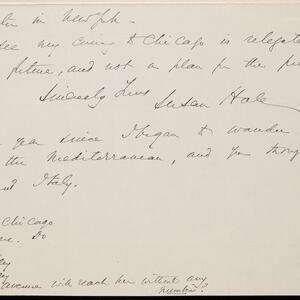 in New York -
see my coming to Chicago is relegated
future, and not a plan for the
Sincerely Yours
Susan Hale
year since I began to wander
the Mediterranean, and you
Italy.
Chicago
Do
avenue will reach her without any
number?